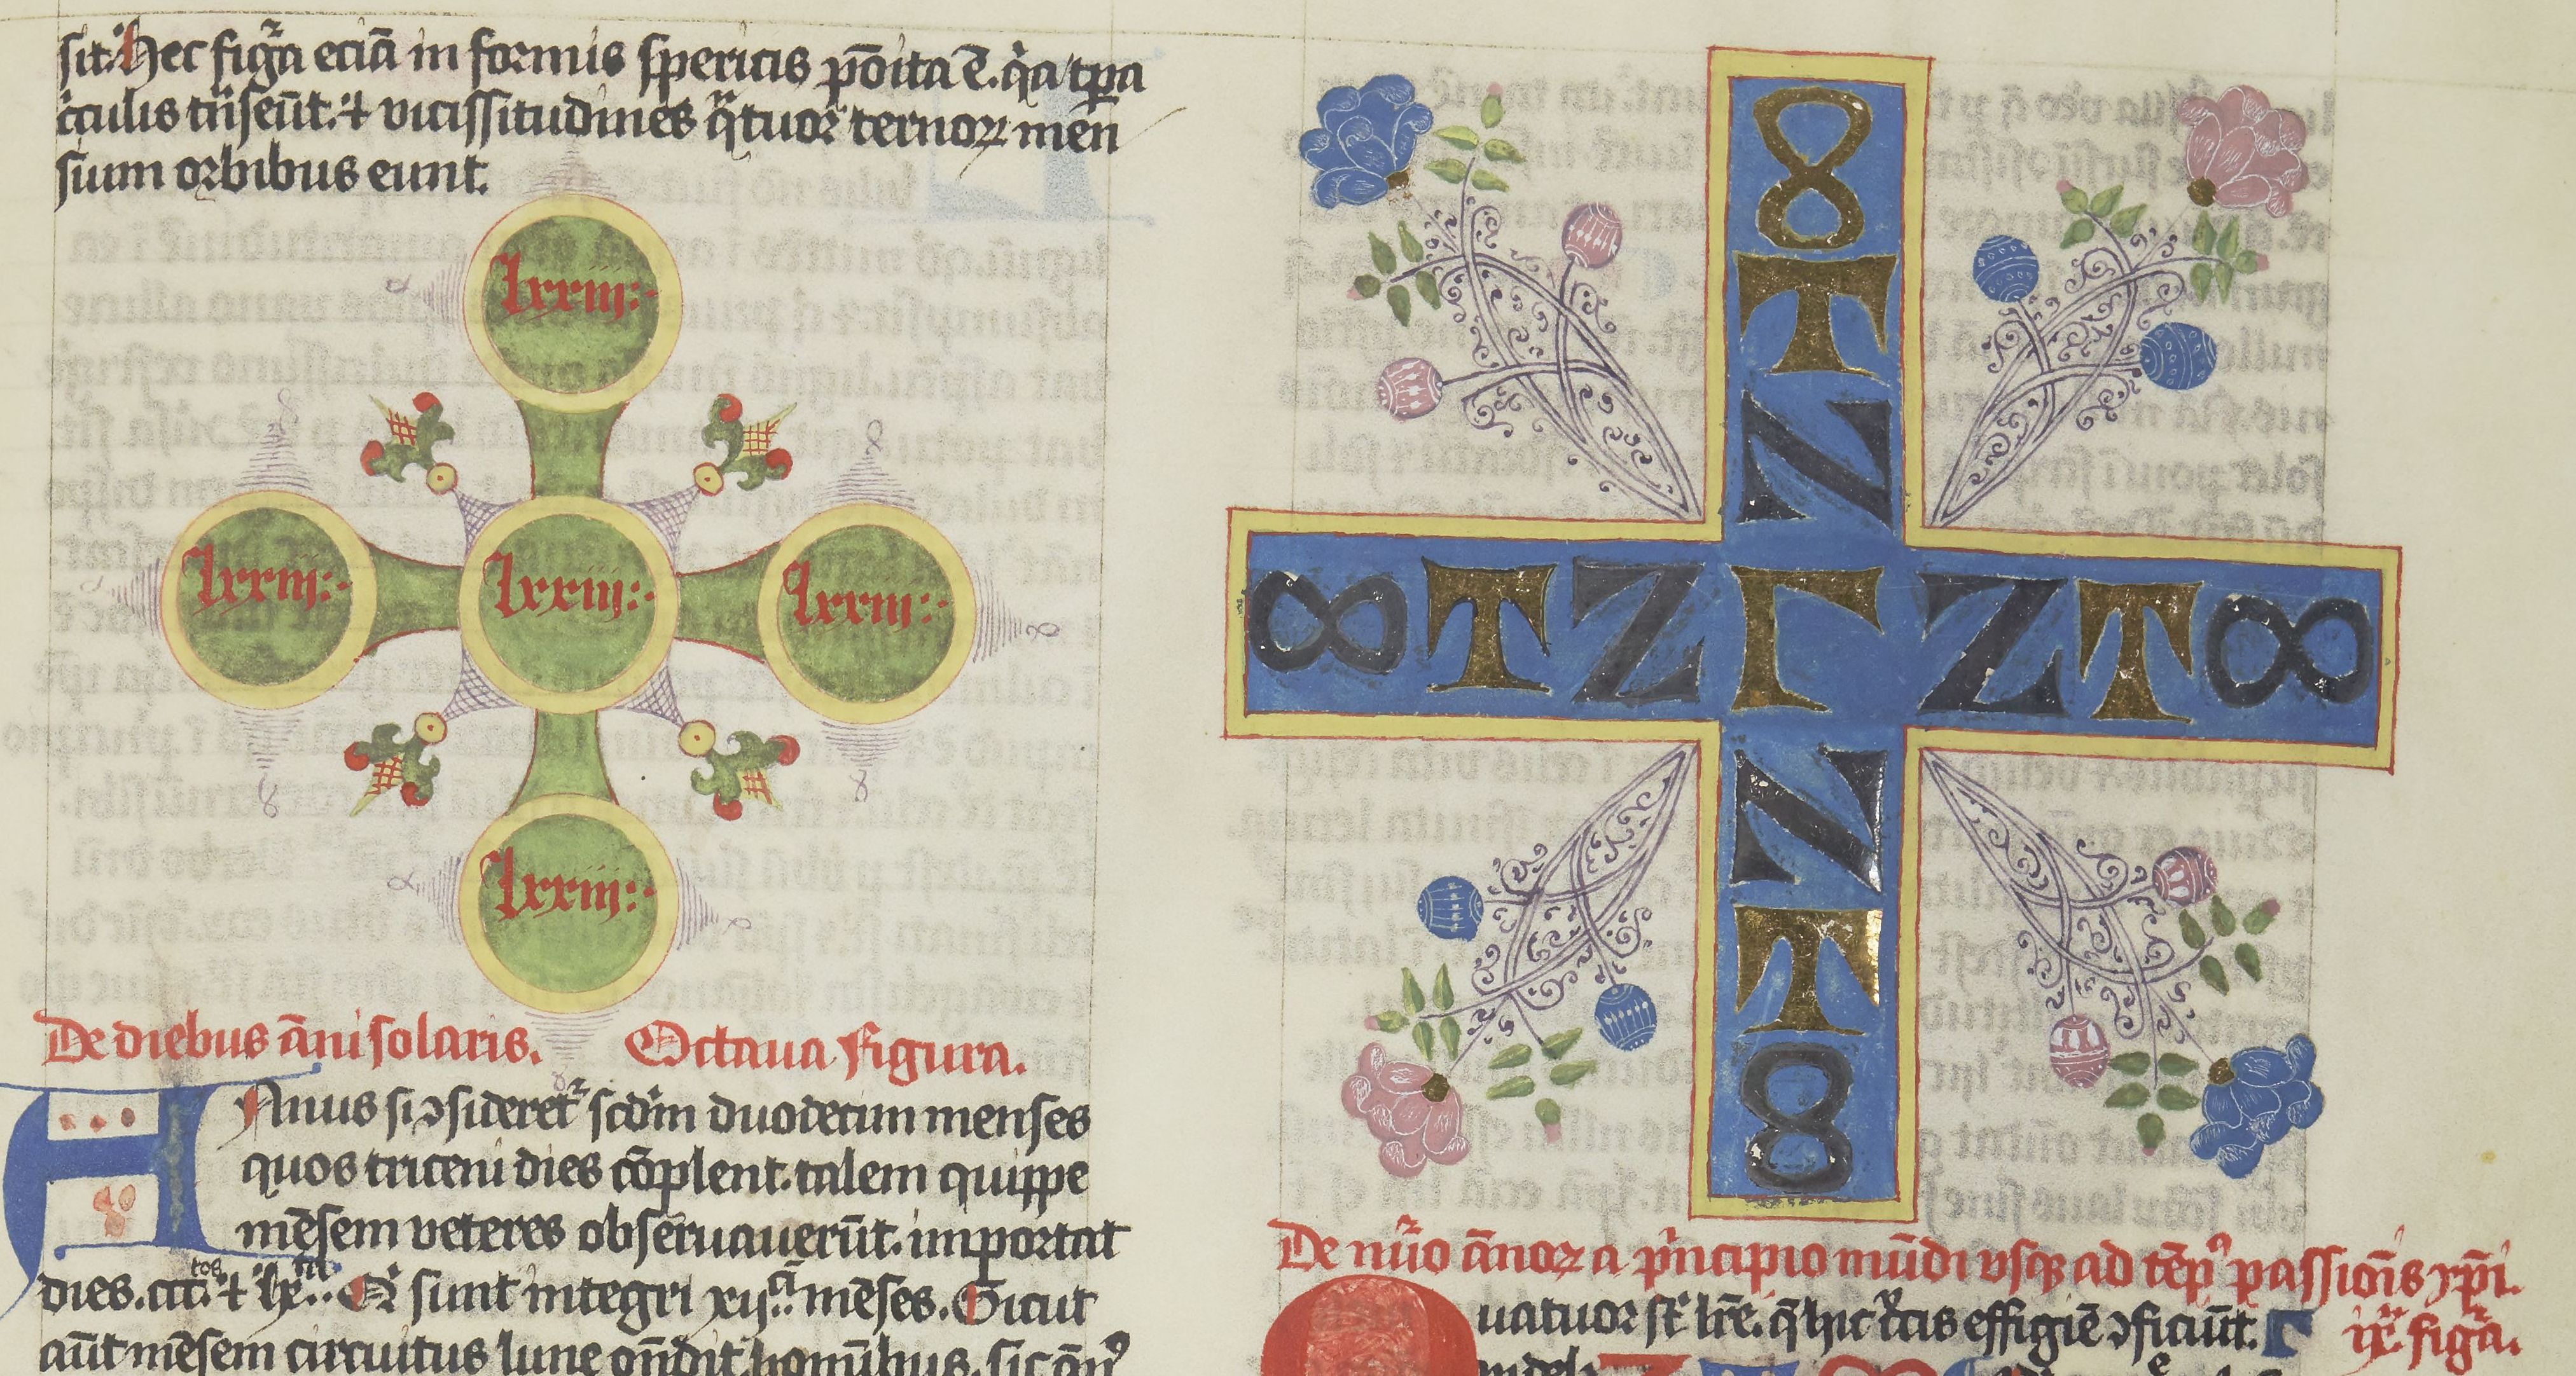 sit. Hec figͬa eciā in formis spericis p̄oita ē. qͥa tꝑa
cͥculis trͣnseūt. ⁊ vicissitudines qͣtuor ternoꝝ men
sium orbibus eunt.
lxxiij:·
lxxiij:· lxxiij:· lxxiij:·
lxxiij:·
De diebus āni solaris. Octaua figura.
Annus si ↄsideretͬ scd̄m duodecim menses
quos triceni dies cōplent. talem quippe
mēsem veteres obseruauerūt. importat
sunt integri xij mēses. Sicut
aūt mēsem circuitus lune on̄dit hominibus. sic ān⁹
8
T
Z
∞ T Z Γ Z T ∞
Z
T
8
De nūo ānoꝝ a pͥncipio mūdi vsqꝫ ad tēp⁹ passiōis xp̄i.
uatuor st̄ lr̄e. q̄ hic crͨcis effigiē ↄficiūt. ix. figͬa.